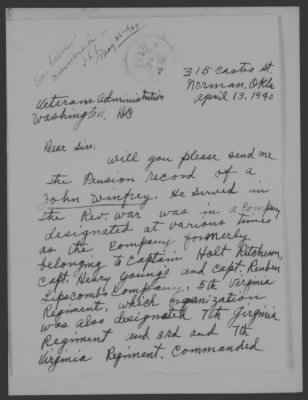 May 22-1940
315 Castro St.
Norman, Okla
April 13, 1940
Veterans Administration
Washington, DC
Dear Sirs:
Will you please send me
the Pension record of a
John Winfrey. He served in
the Rev. war was in a Company
designated at various times
as the Company formerly
belonging to Captain Holt Richeson,
Capt. Henry Young's and Capt. Reuben
Lipscomb's Company, 5th Virginia
Regiment, which organization
was also designated 7th Virginia
Regiment and 3rd and 7th
Virginia Regiment. Commanded